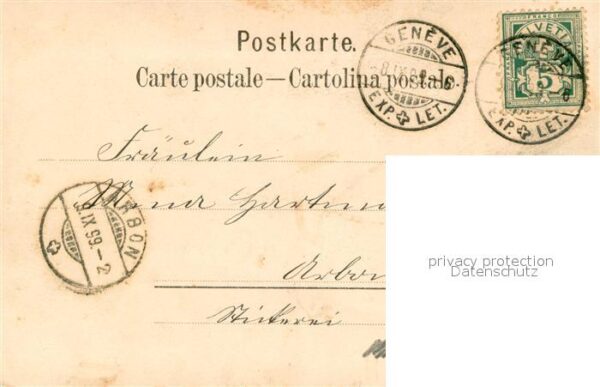 Postkarte.
Carte postale — Cartolina postale.
GENÈVE
EXP. LET.
HELVETIA
FRANCO
5
GENÈVE
EXP. LET.
Fräulein
Hartm
Arbo
Stickerei
ARBON
IX 99-2
privacy protection
Datenschutz